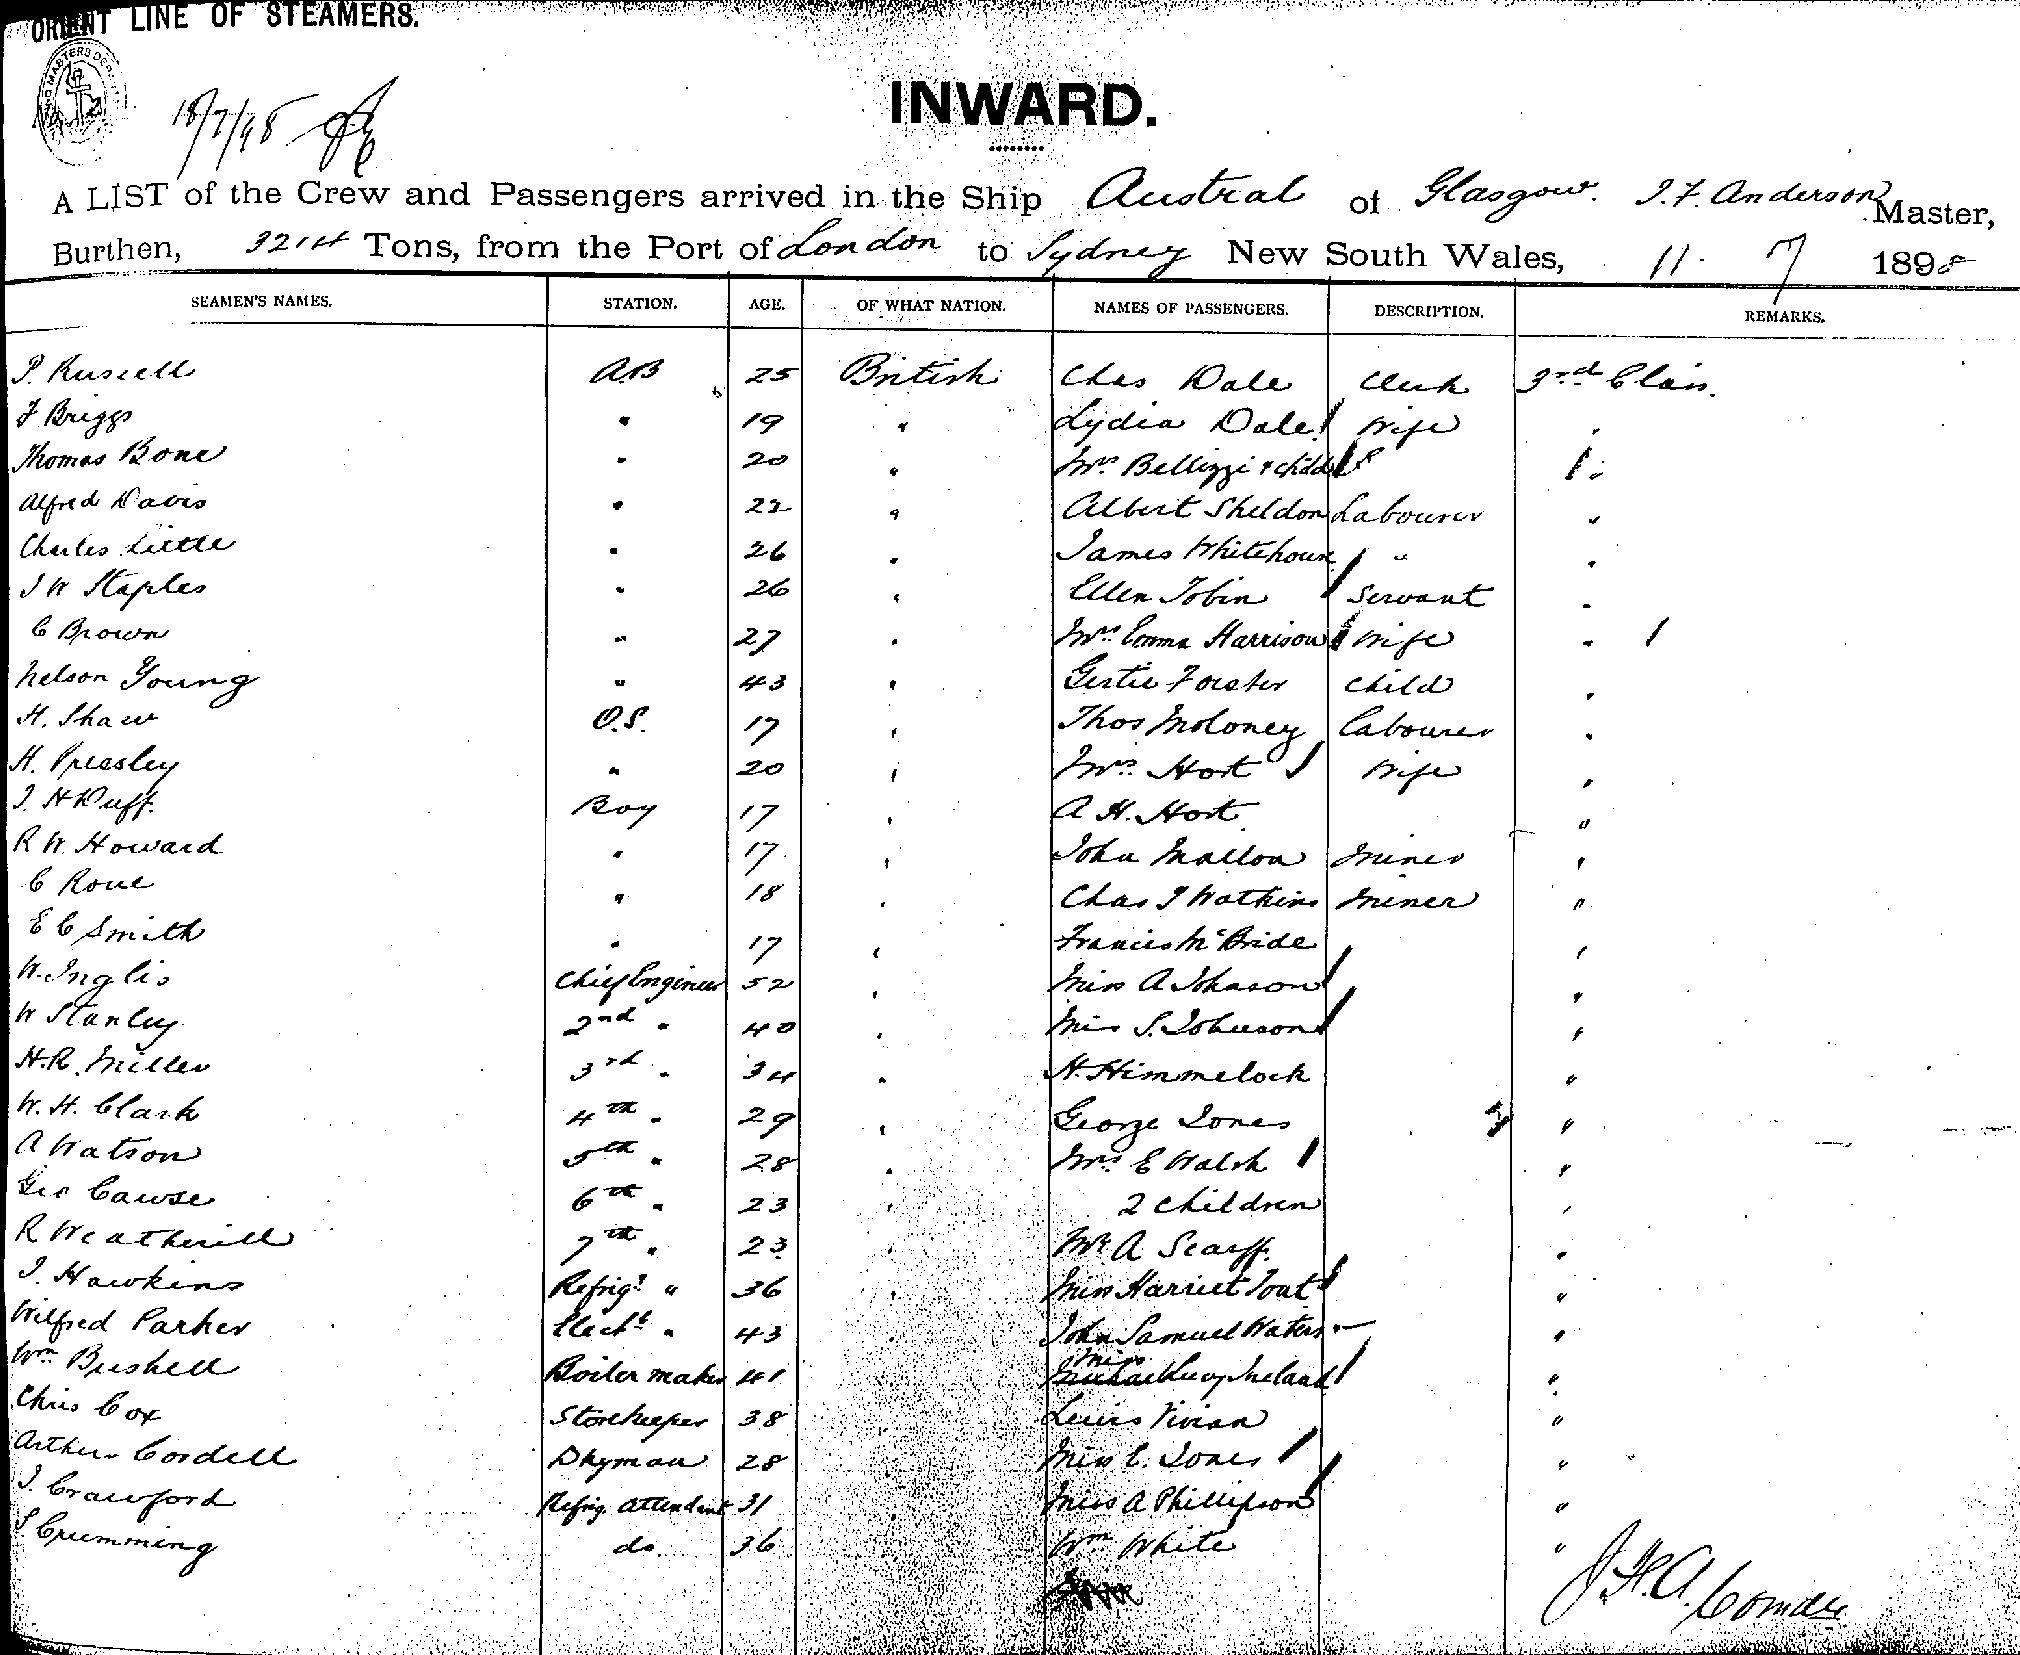 ORIENT LINE OF STEAMERS.
18/7/98
INWARD.
A LIST of the Crew and Passengers arrived in the Ship Austral of Glasgow. J. F. Anderson Master,
Burthen, 3214 Tons, from the Port of London to Sydney New South Wales, 11. 7 1898
SEAMEN'S NAMES. STATION. AGE. OF WHAT NATION. NAMES OF PASSENGERS. DESCRIPTION. REMARKS.
P. Russell A.B 25 British Chas Dale Clerk 3rd Class.
F Briggs " 19 " Lydia Dale Wife "
Thomas Bone " 20 " Mrs Bellizzi & child "
Alfred Davis " 22 " Albert Sheldon Labourer "
Charles Little " 26 " James Whitehouse " "
J W Staples " 26 " Ellen Tobin Servant "
C Brown " 27 " Mrs Emma Harrison Wife "
Nelson Young " 43 " Gertie Forster child "
H. Shaw O.S. 17 " Thos Moloney Labourer "
H. Pressley " 20 " Mrs Hort Wife "
J. H Duff. Boy 17 " A H. Hort "
R W. Howard " 17 " John Mallon Miner "
C Rowe " 18 " Chas J Watkins Miner "
E C Smith " 17 " Francis McBride "
W. Inglis Chief Engineer 52 " Miss A Johnson "
W Stanley 2nd " 40 " Miss S. Johnson "
H.R. Miller 3rd " 34 " H. Himmelock "
W. H. Clark 4th " 29 " George Jones "
A Watson 5th " 28 " Mrs E Walsh "
Geo Cawse 6th " 23 " 2 children "
R Weatherill 7th " 23 Mr A Scarff. "
J. Hawkins Refrigr " 36 Miss Harriet Tout "
Wilfred Parker Elect " 43 John Samuel Waters "
Wm Bushell Boiler maker 41 Miss Lucy Ireland "
Chris Cox Storekeeper 38 Lewis Vivian "
Arthur Cordell Dkyman 28 Miss E. Jones "
J. Crawford Refrig. attendant 31 Miss A Phillipson "
S Crumming do. 36 Wm White "